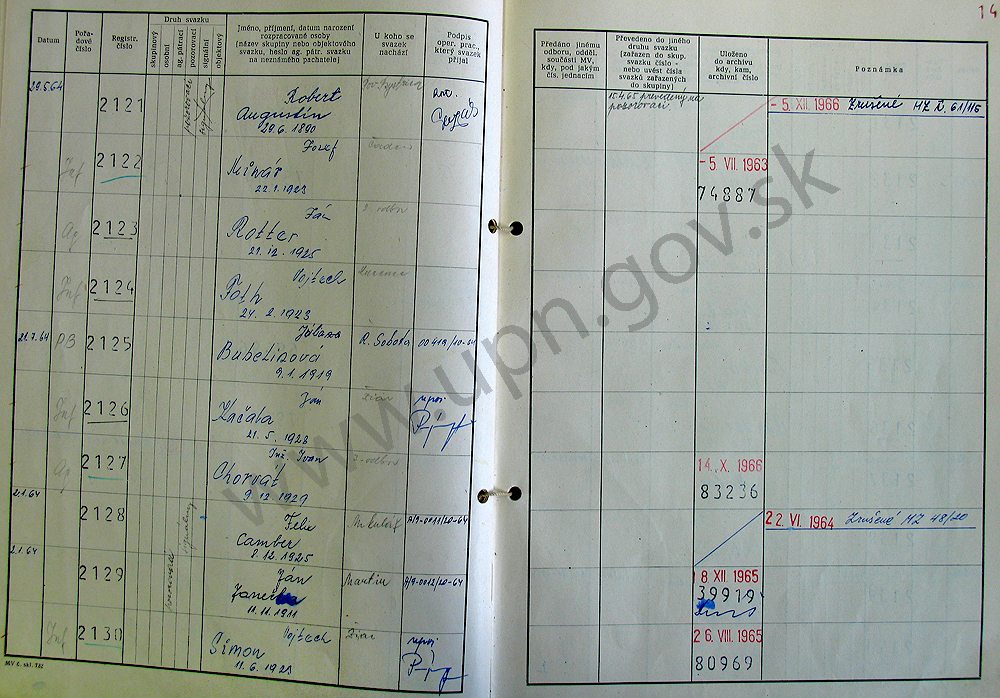 14
Datum
Pořadové číslo
Registr. číslo
Druh svazku
skupinový
osobní
ag. pátrací
pozorovací
signální
objektový
Jméno, příjmení, datum narození
rozpracované osoby
(název skupiny nebo objektového
svazku, heslo ag. pátr. svazku
na neznámého pachatele)
U koho se
svazek
nachází
Podpis
oper. prac.,
který svazek
přijal
Předáno jinému
odboru, odděl.
součásti MV,
kdy, pod jakým
čís. jednacím
Převedeno do jiného
druhu svazku
(zařazen do skup.
svazku číslo -
nebo uvést čísla
svazků zařazených
do skupiny)
Uloženo
do archivu
kdy, kam,
archivní číslo
Poznámka
29.5.64
2121
pozorovací
Robert
Augustín
29.6.1890
15.4.65 prevedený na
pozorovací
- 5. XII. 1966 Zrušené MZ č. 61/HS
Inf
2122
Jozef
Mlynár
22.1.1923
- 5. VII. 1963
74887
Ag
2123
Ján
Rotter
21.12.1925
Inf
2124
Vojtech
Tóth
24.2.1923
21.7.64
PB
2125
Bubelínová
9.1.1919
R. Sobota
00419/10-64
Inf
2126
Ján
Začala
21.5.1928
Žiar
Ag
2127
Inž. Ivan
Chorvát
9.12.1929
14. X. 1966
83236
2.1.64
2128
Felix
Camber
8.12.1925
Mikuláš
A/9-0011/20-64
22. VI. 1964 Zrušené MZ 48/20
2.1.64
2129
Ján
11.11.1911
Martin
A/9-0012/20-64
8 XII. 1965
39919
Inf
2130
Vojtech
Simon
11.6.1923
Žiar
26. VIII. 1965
80969
MV č. skl. 782
www.upn.gov.sk